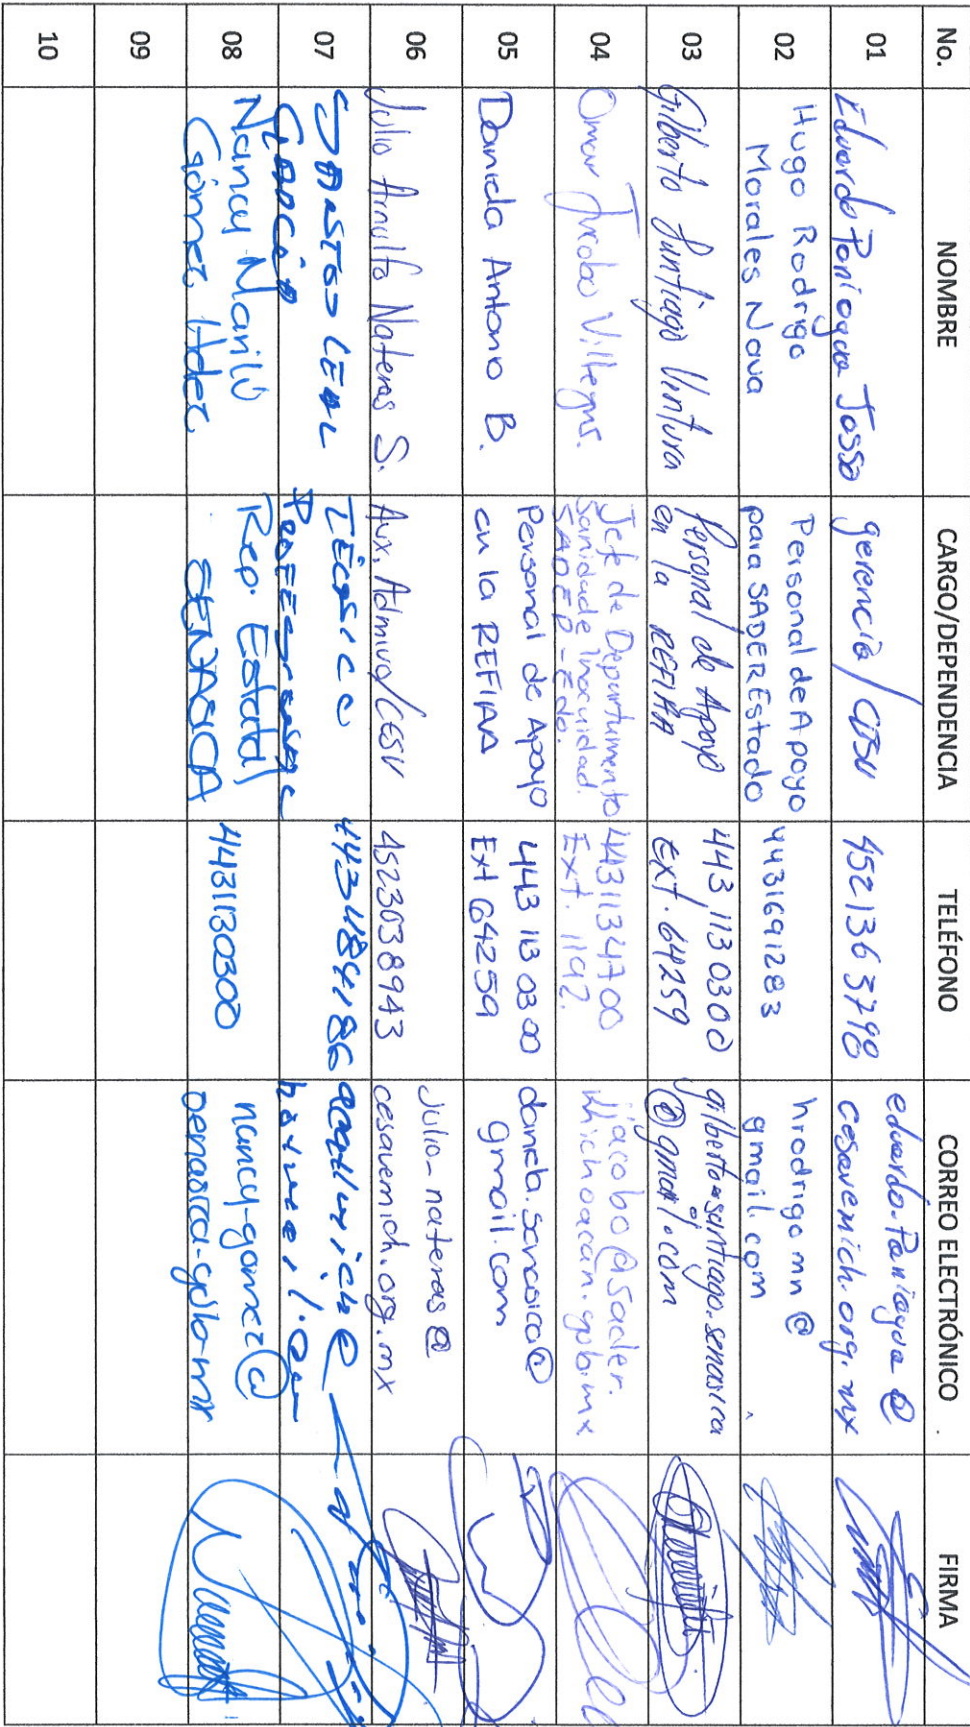 No. NOMBRE CARGO/DEPENDENCIA TELÉFONO CORREO ELECTRÓNICO FIRMA
01 Eduardo Paniagua Josso gerencia / CESV 452136 3790 eduardo.Paniagua @
cesavemich.org.mx
02 Hugo Rodrigo
Morales Nava
Personal de Apoyo
para SADER Estado
4431691283
hrodrigomn @
gmail.com
03 Gilberto Santiago Ventura
Personal de Apoyo
en la REFIAA
443 113 0300
Ext. 64259
gilberto.santiago.senasica
@gmail.com
04 Omar Jacobo Villegas.
Jefe de Departamento
Sanidad e Inocuidad.
SADER-Edo.
4431134700
Ext. 1192.
jacobo@sader.
michoacan.gob.mx
05 Daniela Antonio B.
Personal de Apoyo
en la REFIAA
443 113 03 00
Ext 64259
daniela.senasica@
gmail.com
06 Julio Arnulfo Nateras S. Aux. Admivo/CESV 4523038943
julio-nateras @
cesavemich.org.mx
07 SANTOS LEAL
GARCIA
TÉCNICO
08 Nancy Marilú
Gómez Hdez
Rep. Estatal
SENASICA
4431130300
nancy.gomez@
senasica.gob.mx
09
10